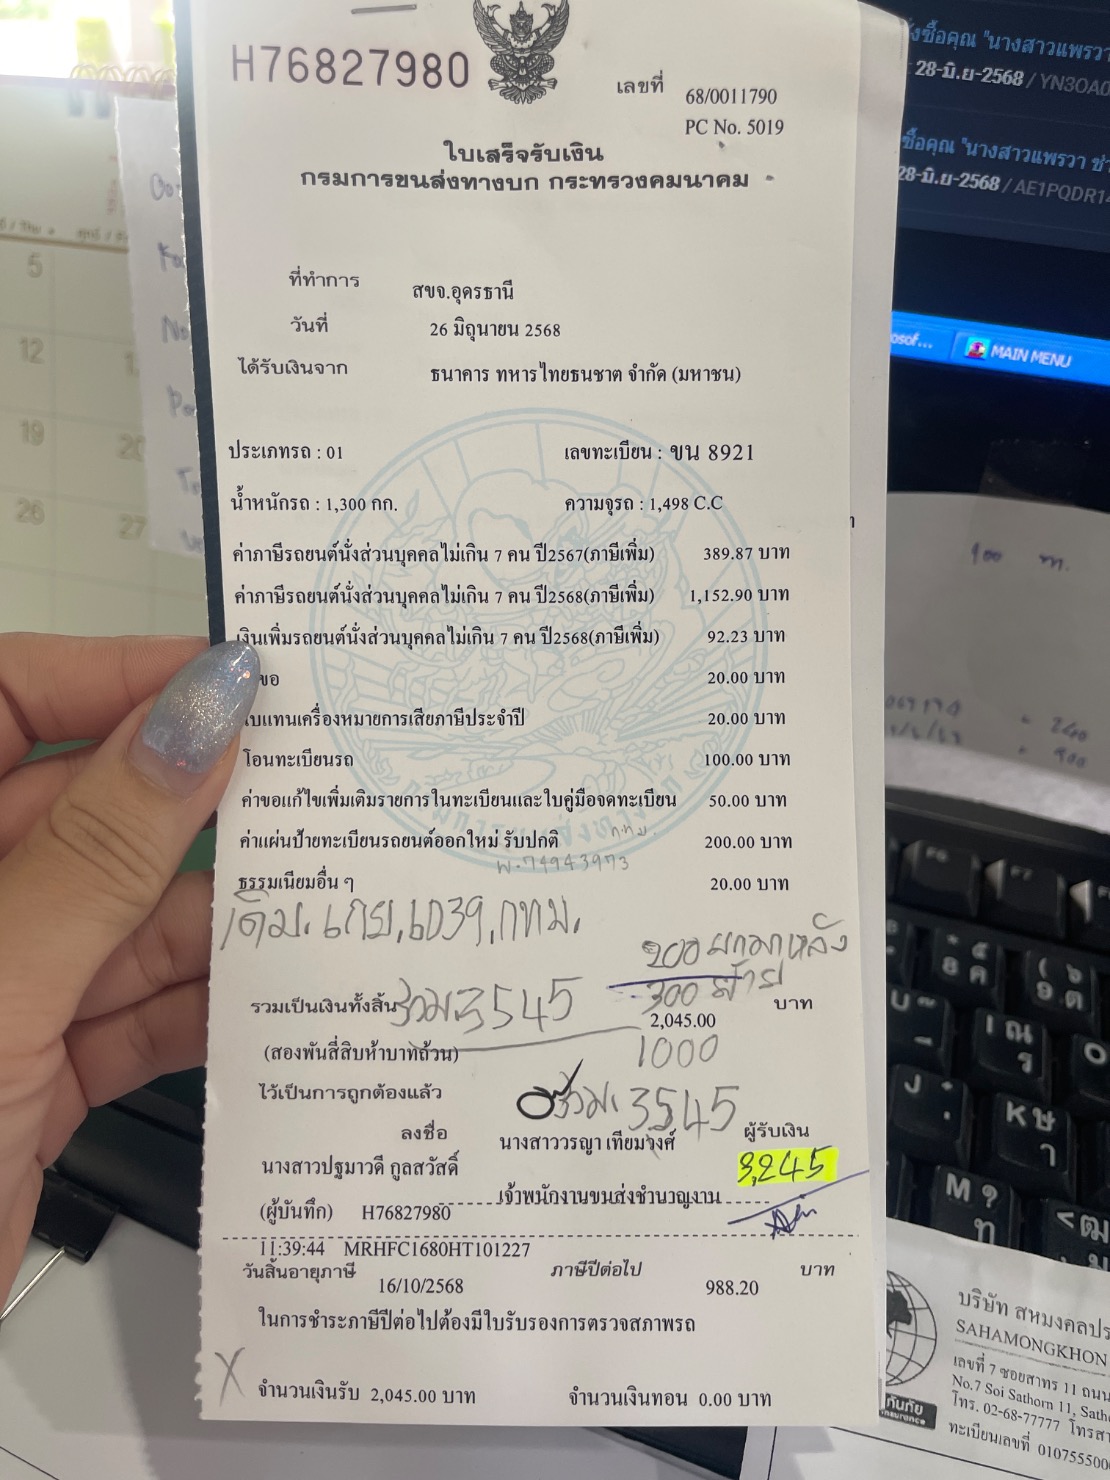 H76827980
เลขที่ 68/0011790
PC No. 5019
ใบเสร็จรับเงิน
กรมการขนส่งทางบก กระทรวงคมนาคม
ที่ทำการ สขจ.อุดรธานี
วันที่ 26 มิถุนายน 2568
ได้รับเงินจาก ธนาคาร ทหารไทยธนชาต จำกัด (มหาชน)
ประเภทรถ : 01 เลขทะเบียน : ขน 8921
น้ำหนักรถ : 1,300 กก. ความจุรถ : 1,498 C.C
ค่าภาษีรถยนต์นั่งส่วนบุคคลไม่เกิน 7 คน ปี2567(ภาษีเพิ่ม) 389.87 บาท
ค่าภาษีรถยนต์นั่งส่วนบุคคลไม่เกิน 7 คน ปี2568(ภาษีเพิ่ม) 1,152.90 บาท
เงินเพิ่มรถยนต์นั่งส่วนบุคคลไม่เกิน 7 คน ปี2568(ภาษีเพิ่ม) 92.23 บาท
ขอ 20.00 บาท
บแทนเครื่องหมายการเสียภาษีประจำปี 20.00 บาท
โอนทะเบียนรถ 100.00 บาท
ค่าขอแก้ไขเพิ่มเติมรายการในทะเบียนและใบคู่มือจดทะเบียน 50.00 บาท
ค่าแผ่นป้ายทะเบียนรถยนต์ออกใหม่ รับปกติ 200.00 บาท
กทม.
ธรรมเนียมอื่น ๆ 20.00 บาท
เดิม. 6039. กทม.
200
300 ป้าย
รวมเป็นเงินทั้งสิ้น รวม. 3545 2,045.00 บาท
(สองพันสี่สิบห้าบาทถ้วน) 1000
ไว้เป็นการถูกต้องแล้ว รวม. 3545
ลงชื่อ นางสาววรญา เทียมวงศ์ ผู้รับเงิน
นางสาวปฐมาวดี กูลสวัสดิ์ 3,245
เจ้าพนักงานขนส่งชำนาญงาน
(ผู้บันทึก) H76827980
11:39:44 MRHFC1680HT101227
วันสิ้นอายุภาษี 16/10/2568 ภาษีปีต่อไป 988.20 บาท
ในการชำระภาษีปีต่อไปต้องมีใบรับรองการตรวจสภาพรถ
X จำนวนเงินรับ 2,045.00 บาท จำนวนเงินทอน 0.00 บาท
ซื้อคุณ "นางสาวแพรวา
28-มิ.ย-2568 / YN3OA0
ซื้อคุณ "นางสาวแพรวา
28-มิ.ย-2568 / AE1PQDR14
MAIN MENU
5
12
19 20
26 27
900
240
900
บริษัท สหมงคลประ
SAHAMONGKHON
เลขที่ 7 ซอยสาทร 11 ถนน
No.7 Soi Sathorn 11, Sath
โทร. 02-68-77777 โทรสา
ทะเบียนเลขที่ 010755500